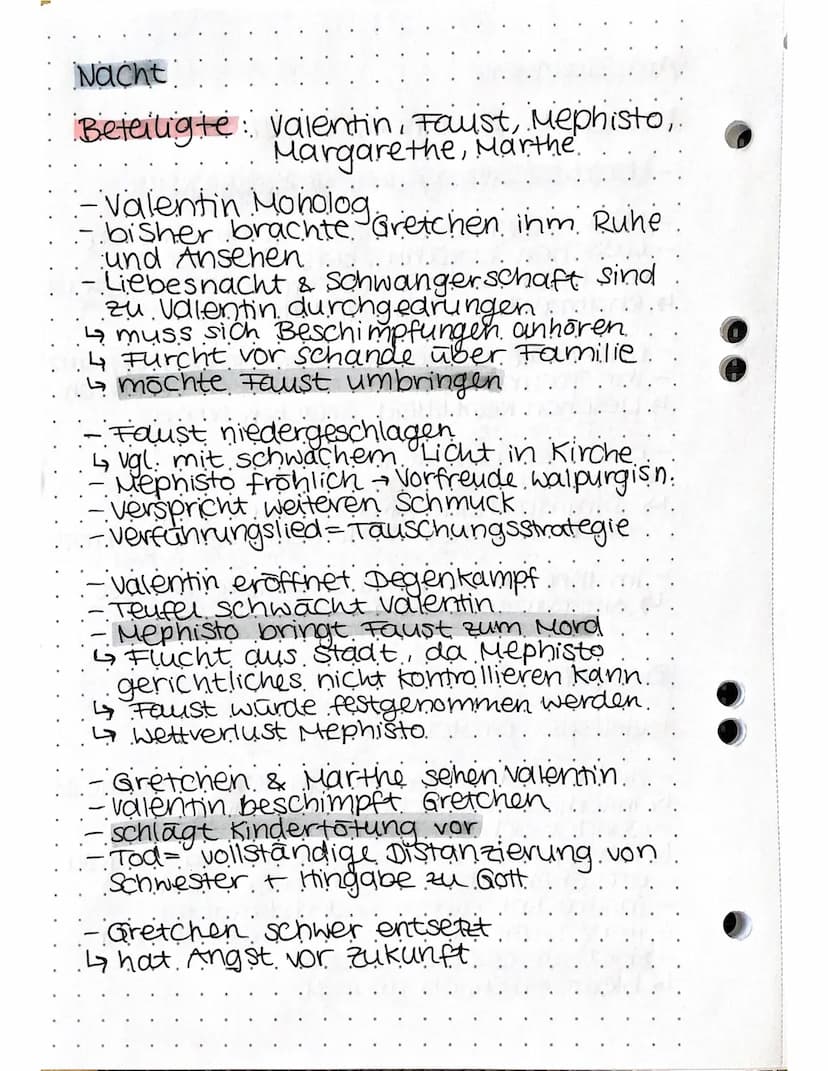 Nacht
Beteiligte: Valentin, Faust, Mephisto,
Margarethe, Marthe
- Valentin Monolog
- bisher brachte Gretchen ihm Ruhe
und Ansehen
- Liebesnacht & Schwangerschaft sind
zu Valentin durchgedrungen
↳ muss sich Beschimpfungen anhören
↳ Furcht vor Schande über Familie
↳ möchte Faust umbringen
- Faust niedergeschlagen
↳ vgl. mit schwachem Licht in Kirche
- Mephisto fröhlich → Vorfreude Walpurgisn.
- verspricht weiteren Schmuck
- Verführungslied = Täuschungsstrategie
- Valentin eröffnet Degenkampf
- Teufel schwächt Valentin
- Mephisto bringt Faust zum Mord
↳ Flucht aus Stadt, da Mephisto
gerichtliches nicht kontrollieren kann
↳ Faust würde festgenommen werden
↳ Wettverlust Mephisto
- Gretchen & Marthe sehen Valentin
- Valentin beschimpft Gretchen
- schlägt Kindertötung vor
- Tod = vollständige Distanzierung von
Schwester + Hingabe zu Gott
- Gretchen schwer entsetzt
↳ hat Angst vor Zukunft